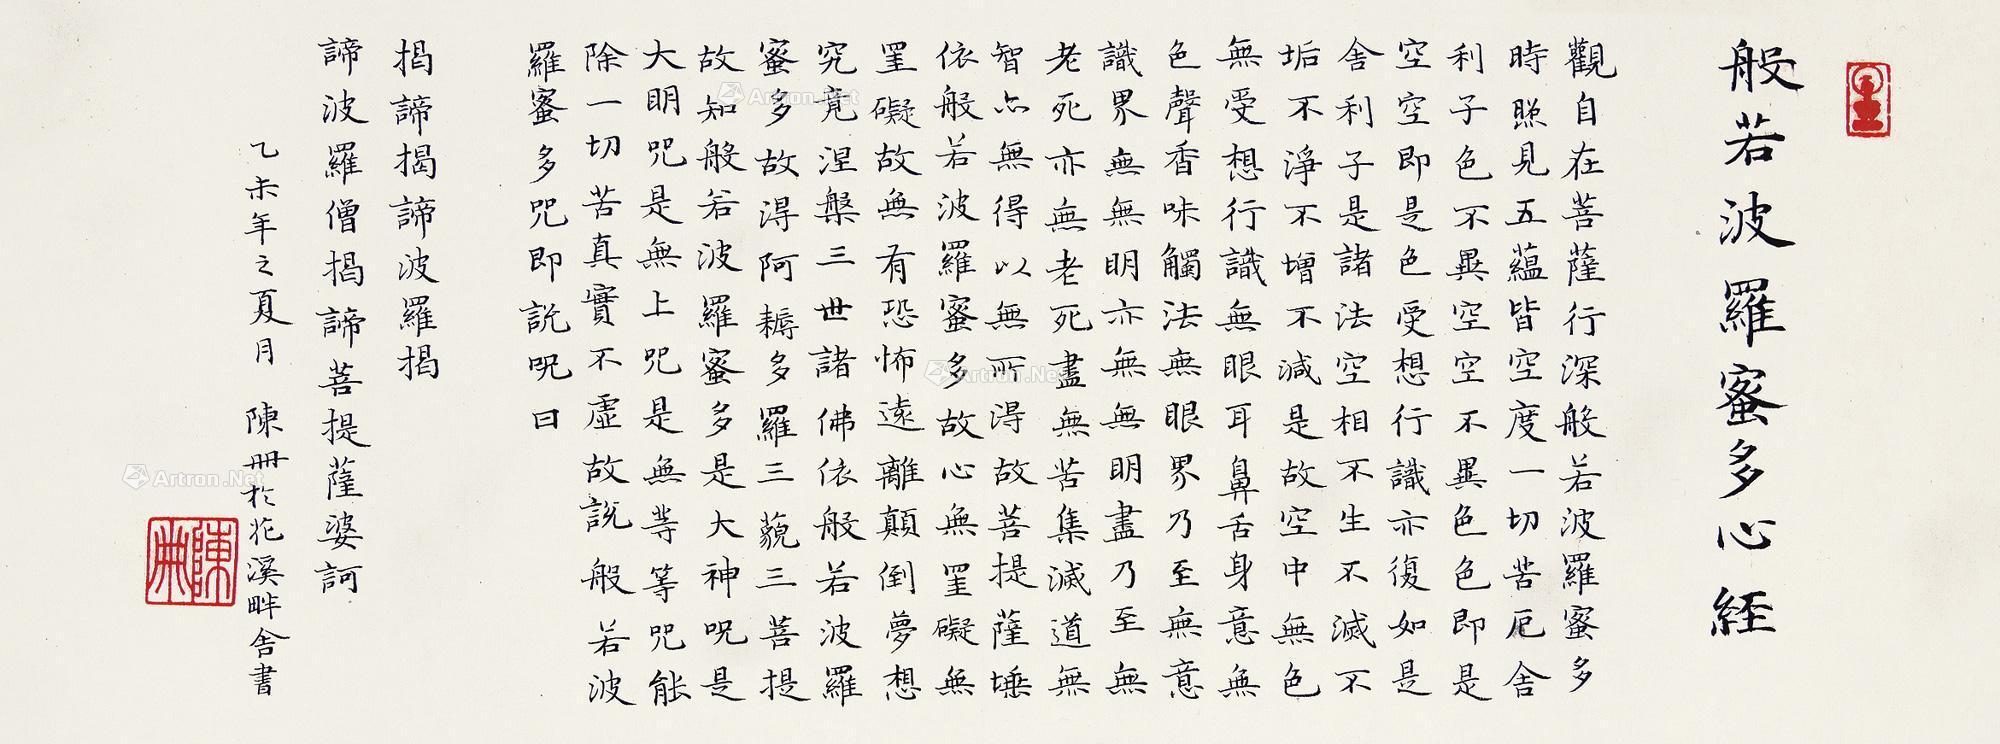 般若波羅蜜多心経
觀自在菩薩行深般若波羅蜜多
時照見五蘊皆空度一切苦厄舍
利子色不異空空不異色色即是
空空即是色受想行識亦復如是
舍利子是諸法空相不生不滅不
垢不淨不增不減是故空中無色
無受想行識無眼耳鼻舌身意無
色聲香味觸法無眼界乃至無意
識界無無明亦無無明盡乃至無
老死亦無老死盡無苦集滅道無
智亦無得以無所得故菩提薩埵
依般若波羅蜜多故心無罣礙無
罣礙故無有恐怖遠離顛倒夢想
究竟涅槃三世諸佛依般若波羅
蜜多故得阿耨多羅三藐三菩提
故知般若波羅蜜多是大神呪是
大明咒是無上咒是無等等咒能
除一切苦真實不虛故說般若波
羅蜜多咒即說呪曰
揭諦揭諦波羅揭
諦波羅僧揭諦菩提薩婆訶
乙未年之夏月 陳冊於花溪畔舍書
陳冊
Artron.Net
Artron.Net
Artron.Net